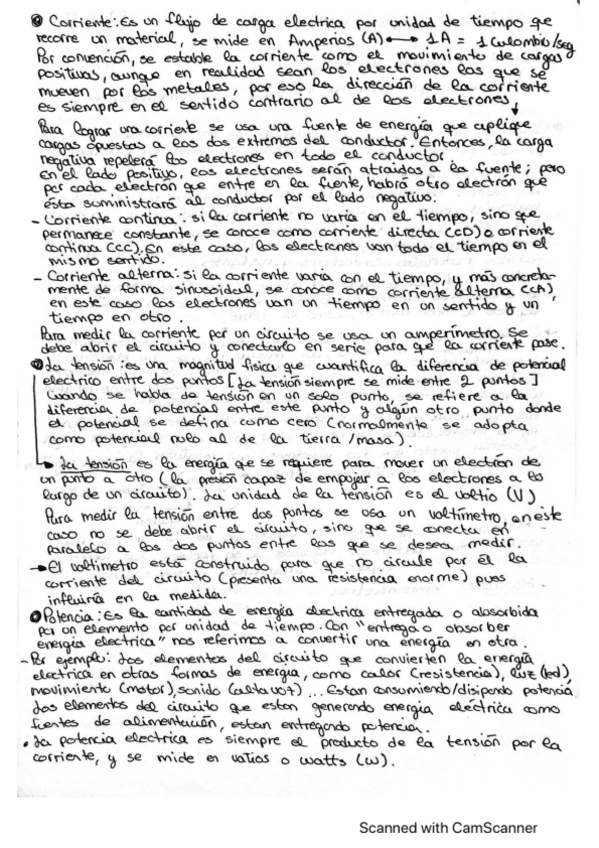 Corriente: Es un flujo de carga electrica por unidad de tiempo que
recorre un material, se mide en Amperios (A) ←→ 1A = 1 Culombio/seg
Por convención, se estable la corriente como el movimiento de cargas
positivas, aunque en realidad sean los electrones los que se
mueven por los metales, por eso la dirección de la corriente
es siempre en el sentido contrario al de los electrones
Para lograr una corriente se usa una fuente de energía que aplique
cargas opuestas a los dos extremos del conductor. Entonces, la carga
negativa repelerá los electrones en todo el conductor
en el lado positivo, los electrones serán atraidos a la fuente; pero
por cada electrón que entre en la fuente, habrá otro electrón que
ésta suministrará al conductor por el lado negativo.
- Corriente continua: si la corriente no varía en el tiempo, sino que
permanece constante, se conoce como corriente directa (CD) o corriente
continua (CC). En este caso, los electrones van todo el tiempo en el
mismo sentido.
- Corriente alterna: si la corriente varía con el tiempo, y más concreta-
mente de forma sinusoidal, se conoce como corriente alterna (CA)
en este caso los electrones van un tiempo en un sentido y un
tiempo en otro.
Para medir la corriente por un circuito se usa un amperímetro. Se
debe abrir el circuito y conectarlo en serie para que la corriente pase.
La tensión: es una magnitud física que cuantifica la diferencia de potencial
electrico entre dos puntos [La tensión siempre se mide entre 2 puntos]
Cuando se habla de tensión en un solo punto, se refiere a la
diferencia de potencial entre este punto y algún otro punto donde
el potencial se defina como cero (normalmente se adopta
como potencial nulo al de la tierra/masa).
La tensión es la energía que se requiere para mover un electrón de
un punto a otro (la presión capaz de empujar a los electrones a lo
largo de un circuito). La unidad de la tensión es el voltio (V)
Para medir la tensión entre dos puntos se usa un voltímetro, en este
caso no se debe abrir el circuito, sino que se conecta en
paralelo a los dos puntos entre los que se desea medir.
→ El voltimetro está construido para que no circule por él la
corriente del circuito (presenta una resistencia enorme) pues
influiría en la medida.
Potencia: Es la cantidad de energía electrica entregada o absorbida
por un elemento por unidad de tiempo. Con "entrega o absorber
energía electrica" nos referimos a convertir una energía en otra.
- Por ejemplo: Los elementos del circuito que convierten la energía
electrica en otras formas de energía, como calor (resistencia), luz (led),
movimiento (motor), sonido (altavoz)... Estan consumiendo/disipando potencia
Los elementos del circuito que estan generando energia eléctrica como
fuentes de alimentación, estan entregando potencia.
• La potencia electrica es siempre el producto de la tensión por la
corriente, y se mide en vatios o watts (w).
Scanned with CamScanner